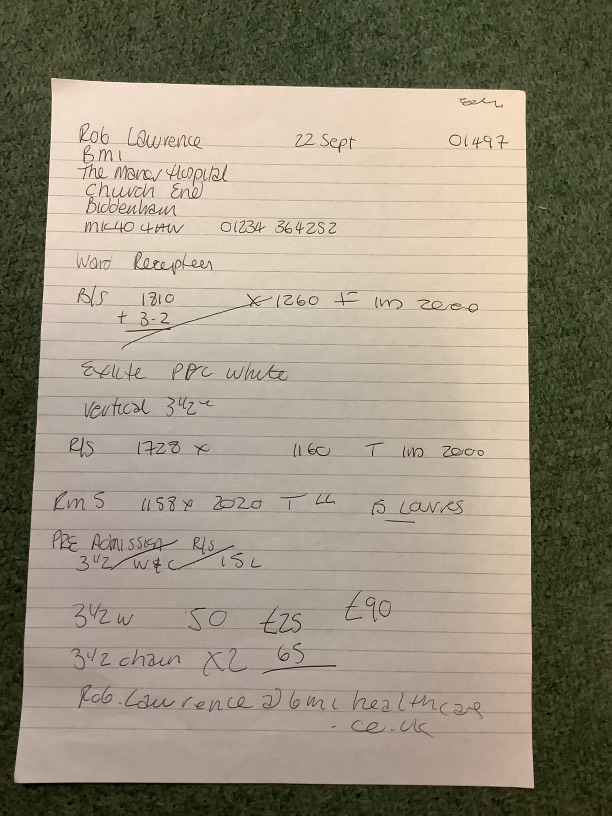 Rob Lawrence 22 Sept 01497
BMI
The Manor Hospital
Church End
Biddenham
MK40 4AW 01234 364252
Ward Reception
B/S 1810 x 1260 F IWD 2000
+ 3-2
PPC white
vertical 3 1/2 "
R/S 1728 x 1160 T IWD 2000
Rm 5 1158 x 2020 T LL 15 Louvres
PRE Admission R/S
3 1/2 W&C 15L
3 1/2 w 50 £25 £90
3 1/2 chain x2 65
Rob.Lawrence@bmihealthcare
.co.uk